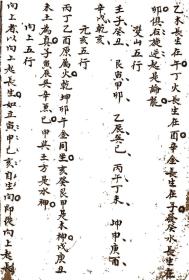 乙木長生在午丁火長生在酉辛金長生在子癸水長生在
卯俱右旋逆長是論龍
雙山五行
壬子癸丑　艮寅甲卯　乙辰巽巳　丙午丁未　坤申庚酉
辛戌乾亥
元亥五行
丙丁乙酉原属火乾坤卯午金同坐亥癸艮甲是木神戌庚丑
未土為真子寅辰巽辛焦巳　申與壬方是水神
向上五行
向者以向上起長生如丑寅甲乙亥自生向即從向上起